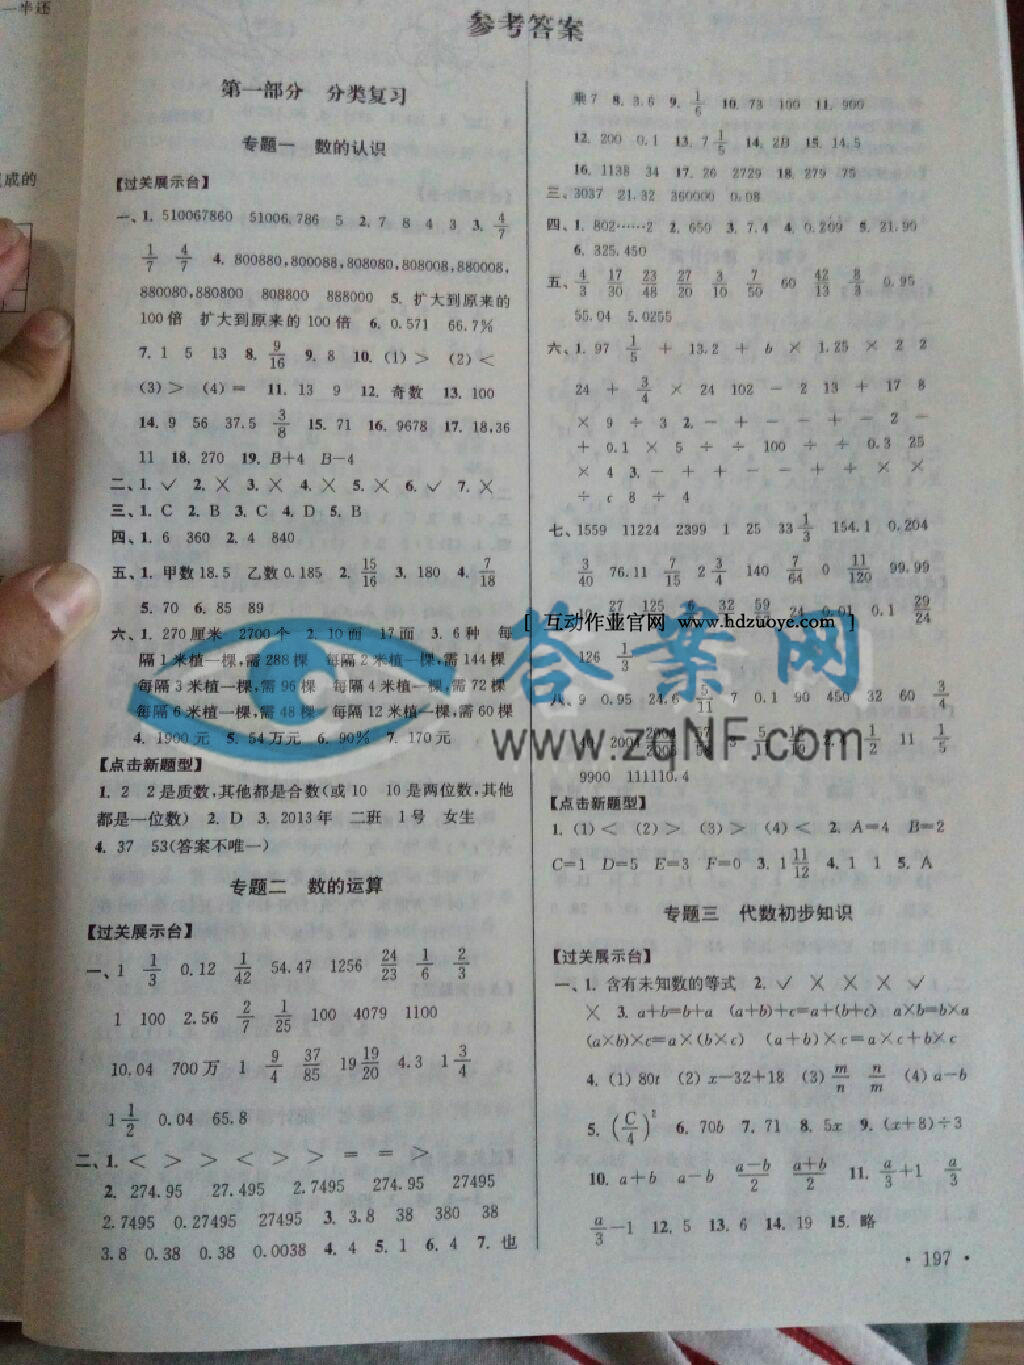 一率还
成的
参考答案
第一部分 分类复习
专题一 数的认识
【过关展示台】
一、1. 510067860 51006.786 5 2. 7 8 4 3 3. 4/7
1/7 4/7 4. 800880,800088,808080,808008,880008,
880080,880800 808800 888000 5. 扩大到原来的
100倍 扩大到原来的100倍 6. 0.571 66.7%
7. 1 5 13 8. 9/16 9. 8 10. (1)> (2)<
(3)> (4)= 11. 13 9 12. 奇数 13. 100
14. 9 56 37.5 3/8 15. 71 16. 9678 17. 18,36
11 18. 270 19. B+4 B-4
二、1. ✓ 2. × 3. × 4. × 5. × 6. ✓ 7. ×
三、1. C 2. B 3. C 4. D 5. B
四、1. 6 360 2. 4 840
五、1. 甲数18.5 乙数0.185 2. 15/16 3. 180 4. 7/18
5. 70 6. 85 89
六、1. 270厘米 2700个 2. 10面 17面 3. 6种 每
隔1米植一棵,需288棵 每隔2米植一棵,需144棵
每隔3米植一棵,需96棵 每隔4米植一棵,需72棵
每隔6米植一棵,需48棵 每隔12米植一棵,需60棵
4. 1900元 5. 54万元 6. 90% 7. 170元
【点击新题型】
1. 2 2是质数,其他都是合数(或10 10是两位数,其他
都是一位数) 2. D 3. 2013年 二班 1号 女生
4. 37 53(答案不唯一)
专题二 数的运算
【过关展示台】
一、1 1/3 0.12 1/42 54.47 1256 24/23 1/6 2/3
1 100 2.56 2/7 1/25 100 4079 1100
10.04 700万 1 9/4 37/85 19 19/20 4.3 1 3/4
1 1/2 0.04 65.8
二、1. < > > < > > = = >
2. 274.95 27.495 2.7495 274.95 27495
2.7495 0.27495 27495 3. 3.8 38 380 38
3.8 0.38 0.38 0.0038 4. 4 5. 1 6. 4 7. 也
乘7 8. 3.6 9. 1/6 10. 73 100 11. 900
12. 200 0.1 13. 7 1/5 14. 2B 15. 14.5
16. 1138 34 17. 26 2729 18. 279 75
三、3037 21.32 360000 0.08
四、1. 802……2 2. 650 3. 7.4 4. 0.209 5. 21.90
6. 325.450
五、4/3 17/30 23/48 27/20 3/10 7/50 60 42/13 8/3 0.95
55.04 5.0255
六、1. 97 1/5 + 13.2 + b × 1.25 × 2 2
24 + 3/4 × 24 102 - 2 13 + 17 8
× 9 ÷ 3 2. - + - - + - 2 -
+ 0.1 × 5 ÷ ÷ 100 ÷ ÷ 0.3 25
× 4 3. - + + - - + + × ×
÷ c 8 ÷ 4
七、1559 11224 2399 1 25 33 1/3 154.1 0.204
3/40 76.11 7/15 2 3/4 140 7/64 0 11/120 99.99
27 125 32 59 24 0.01 0.1 29/24
[ 互动作业官网 www.hdzuoye.com ]
126 1/3
答案网
八、9 0.95 24.6 5/11 7 0.1 90 450 32 60 3/4
1/2 11 1/5
www.zqNF.com
9900 111110.4
【点击新题型】
1. (1)< (2)> (3)> (4)< 2. A=4 B=2
C=1 D=5 E=3 F=0 3. 1 11/12 4. 1 1 5. A
专题三 代数初步知识
【过关展示台】
一、1. 含有未知数的等式 2. ✓ × × × ✓
× 3. a+b=b+a (a+b)+c=a+(b+c) a×b=b×a
(a×b)×c=a×(b×c) (a+b)×c=a×c+b×c
4. (1)80t (2)x-32+18 (3)m/n n/m (4)a-b
5. (C/4)² 6. 70b 7. 71 8. 5x 9. (x+8)÷3
10. a+b a-b (a-b)/2 (a+b)/2 11. a/3+1 a/3
a/3-1 12. 5 13. 6 14. 19 15. 略
· 197 ·